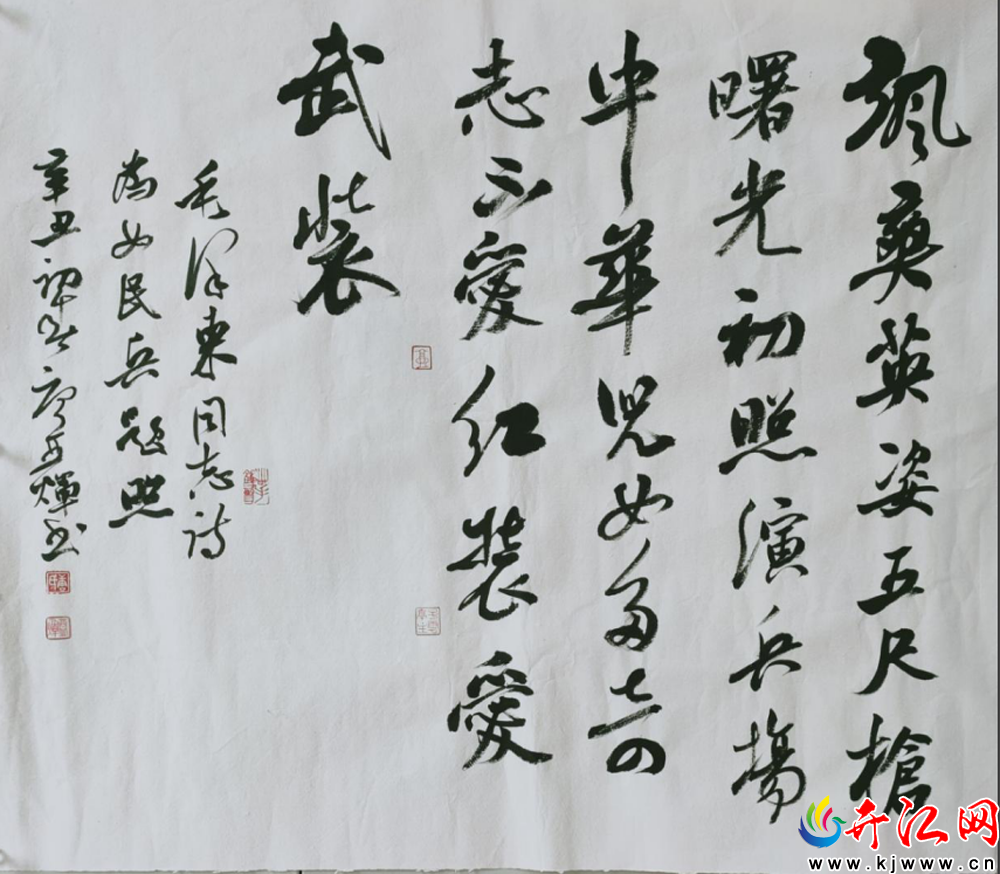 飒爽英姿五尺槍
曙光初照演兵場
中華兒女多奇
志不愛红裝愛
武裝
毛泽東同志诗
为女民兵题照
辛丑 廖 輝书
开江网
www.kjwww.cn